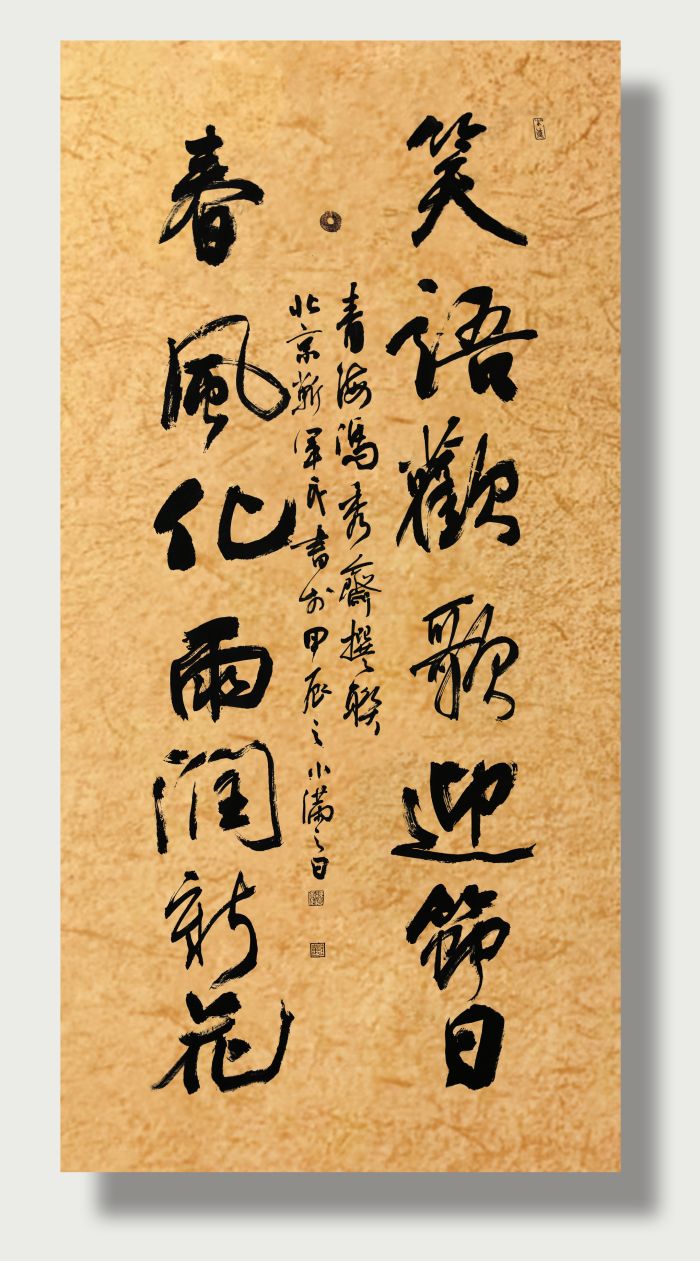 笑語歡歌迎節日
青海馮秀齋撰聯
北京靳軍民書於甲辰之小滿之日
春風化雨潤新花